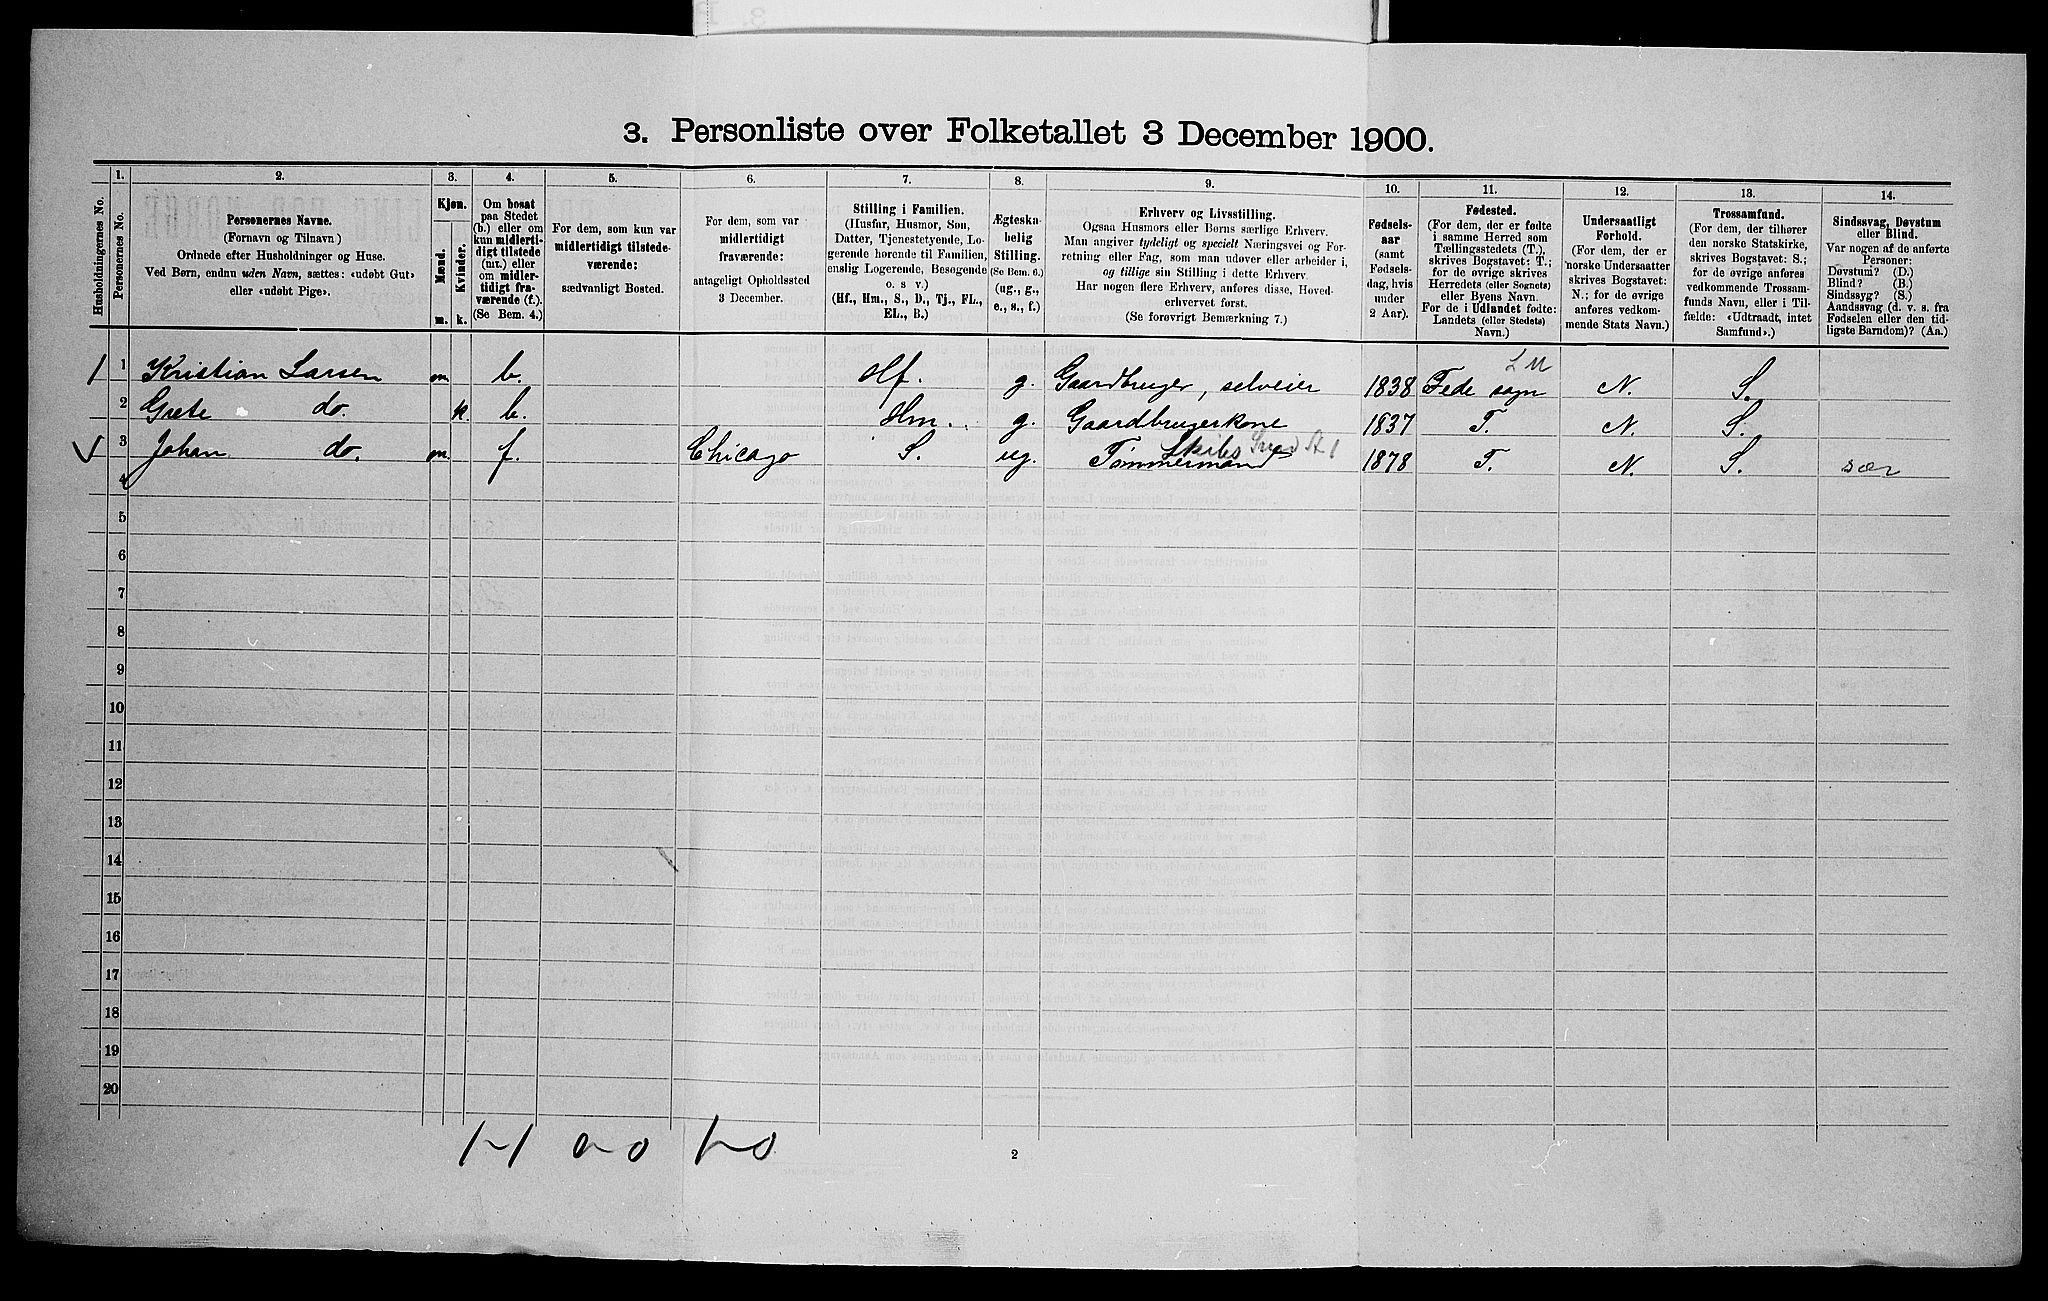 3. Personliste over Folketallet 3 December 1900.
Husholdningernes No.
1.
Personernes No.
2.
Personernes Navne.
(Fornavn og Tilnavn)
Ordnede efter Husholdninger og Huse.
Ved Børn, endnu uden Navn, sættes: «udøbt Gut»
eller «udøbt Pige».
3.
Kjøn.
Mænd.
Kvinder.
m.
k.
4.
Om bosat
paa Stedet
(b.) eller om
kun midlerti-
digt tilstede
(mt.) eller
om midler-
tidigt fra-
værende (f.).
(Se Bem. 4.)
5.
For dem, som kun var
midlertidigt tilstede-
værende:
sædvanligt Bosted.
6.
For dem, som var
midlertidigt
fraværende:
antageligt Opholdssted
3 December.
7.
Stilling i Familien.
(Husfar, Husmor, Søn,
Datter, Tjenestetyende, Lo-
gerende hørende til Familien,
enslig Logerende, Besøgende
o. s. v.)
(Hf., Hm., S., D., Tj., FL.,
EL., B.)
8.
Ægteska-
belig
Stilling.
(Se Bem. 6.)
(ug., g.,
e., s., f.)
9.
Erhverv og Livsstilling.
Ogsaa Husmors eller Børns særlige Erhverv.
Man angiver tydeligt og specielt Næringsvei og For-
retning eller Fag, som man udøver eller arbeider i,
og tillige sin Stilling i dette Erhverv.
Har nogen flere Erhverv, anføres disse, Hoved-
erhvervet først.
(Se forøvrigt Bemærkning 7.)
10.
Fødsels-
aar
(samt
Fødsels-
dag, hvis
under
2 Aar).
11.
Fødested.
(For dem, der er fødte
i samme Herred som
Tællingsstedets (T.),
skrives Bogstavet: T.;
for de øvrige skrives
Herredets (eller Sognets)
eller Byens Navn.
For de i Udlandet fødte:
Landets (eller Stedets)
Navn.)
12.
Undersaatligt
Forhold.
(For dem, der er
norske Undersaatter
skrives Bogstavet:
N.; for de øvrige
anføres vedkom-
mende Stats Navn.)
13.
Trossamfund.
(For dem, der tilhører
den norske Statskirke,
skrives Bogstavet: S.;
for de øvrige anføres
vedkommende Trossam-
funds Navn, eller i Til-
fælde: «Udtraadt, intet
Samfund».)
14.
Sindssvag, Døvstum
eller Blind.
Var nogen af de anførte
Personer:
Døvstum? (D.)
Blind? (B.)
Sindssyg? (S.)
Aandssvag (d. v. s. fra
Fødselen eller den tid-
ligste Barndom)? (Aa.)
1 1 Kristian Larsen m. b. Hf. g. Gaardbruger, selveier 1838 Fede sogn N. S.
2 Grete do. k. b. Hm. g. Gaardbrugerkone 1837 T. N. S.
Skibs
3 Johan do. m. f. Chicago S. ug. Tømmermand 1878 T. N. S. sær
4
5
6
7
8
9
10
11
12
13
14
15
16
17
18
19
20
1-1 0-0 1-0
2